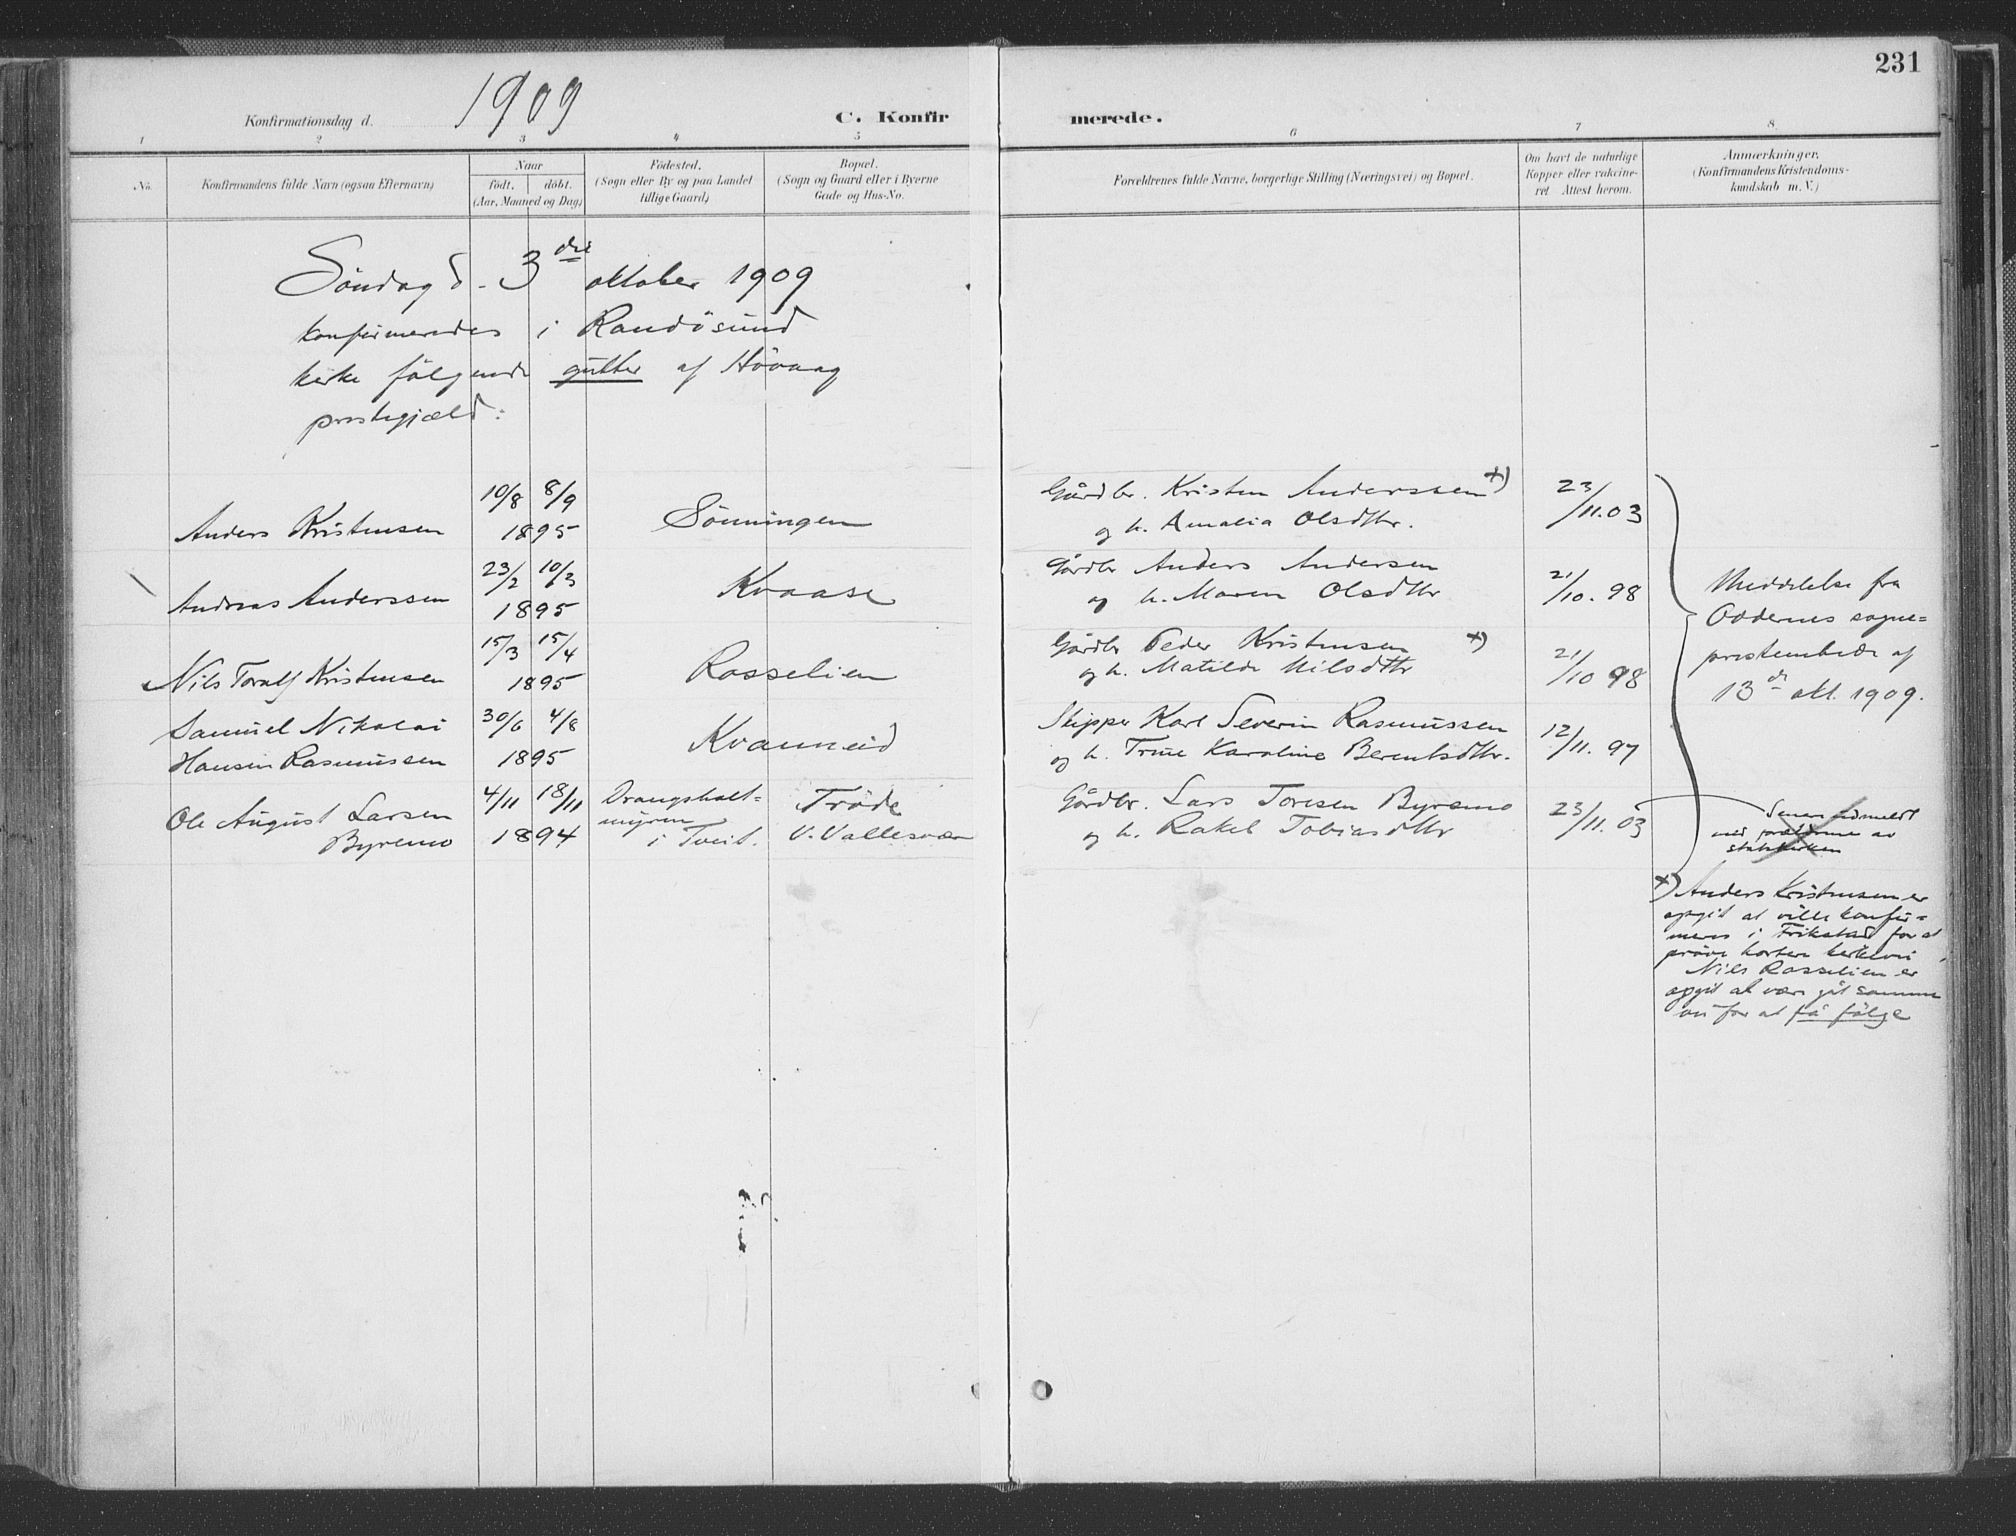 231
Konfirmationsdag d. 1909
C. Konfirmerede.
1 2 3 4 5 6 7 8
No.
Konfirmandens fulde Navn (ogsaa Efternavn)
Naar
födt. döbt.
(Aar, Maaned og Dag)
Födested.
(Sogn eller By og paa Landet
tillige Gaard)
Bopæl.
(Sogn og Gaard eller i Byerne
Gade og Hus-No.
Forældrenes fulde Navne, borgerlige Stilling (Næringsvei) og Bopæl.
Om havt de naturlige
Kopper eller vakcine-
ret Attest herom.
Anmærkninger.
(Konfirmandens Kristendoms-
kundskab m. V.)
Söndag d. 3die oktober 1909
konfirmeredes i Randösund
kirke fölgende gutter af Hövaag
prestegjæld:
Anders Kristensen
10/8 8/9
1895
Sönningen
Gårdbr. Kristen Anderssen +)
og h. Amalia Olsdttr.
23/11.03
Andreas Anderssen
23/2 10/3
1895
Kvaase
Gårdbr Anders Andersen
og h. Maren Olsdttr
21/10.98
Nils Toralf Kristensen
15/3 15/4
1895
Rosselien
Gårdbr Peder Kristensen +)
og h. Matilde Nilsdttr
21/10 98
Samuel Nikolai
Hansen Rasmussen
30/6 4/8
1895
Kvanneid
Skipper Karl Severin Rasmussen
og h. Trine Karoline Berentsdttr.
12/11.97
Ole August Larsen
Byremo
4/11 18/11
1894
Drangsholt-
myren
i Tveit.
Tröde
V. Vallesvær
Gårdbr. Lars Toresen Byremo
og h. Rakel Tobiasdttr
23/11.03
Meddelelse fra
Oddernes sogne=
prestembede af
13de okt. 1909.
Senere udmeldt
med forældrene av
statskirken
+) Anders Kristensen er
opgit at ville konfir=
meres i Frikstad for at
pröve kortere kirkevei
Nils Rosselien er
opgit at være gåt samme
vei for at få fölge